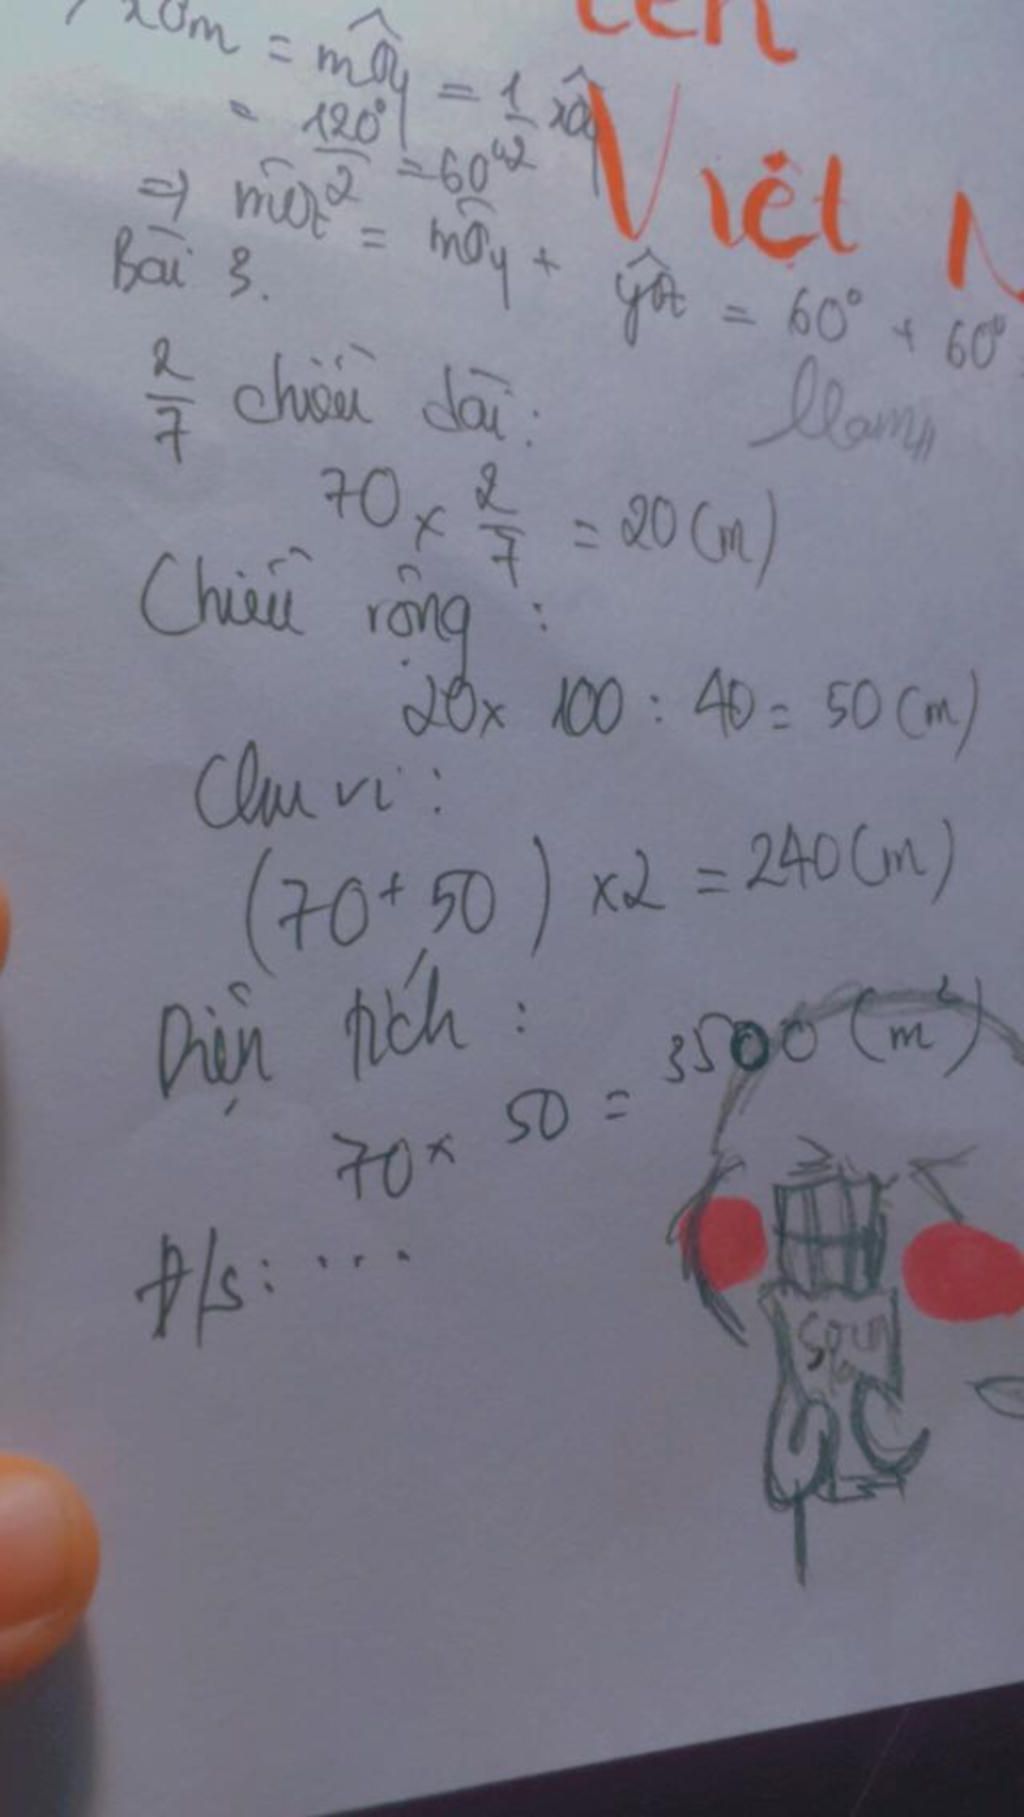 xOm = mOy = 1/2 xOy
= 120°/2 = 60°
⇒ mOt = mOy + yOt = 60° + 60°
Việt
Bài 3.
2/7 chiều dài:
70 x 2/7 = 20 (m)
Chiều rộng:
20 x 100 : 40 = 50 (m)
Chu vi:
(70 + 50) x 2 = 240 (m)
Diện tích:
70 x 50 = 3500 (m²)
Đ/s: ...